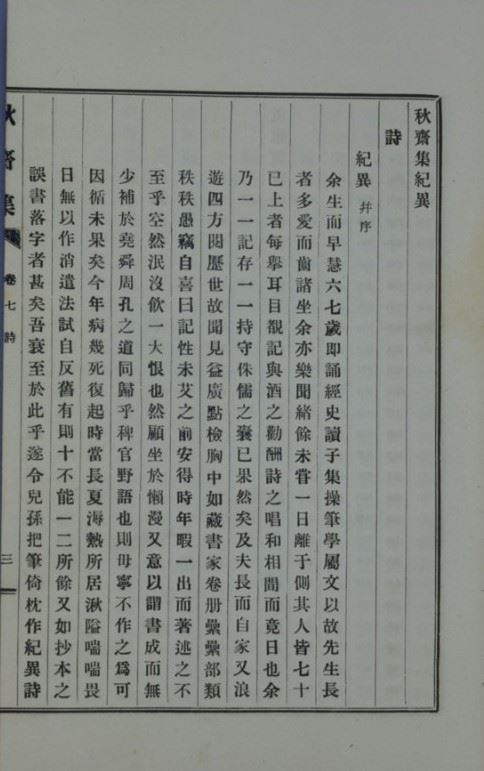 秋齋集紀異
詩
紀異 幷序
余生而早慧六七歲卽誦經史讀子集操筆學屬文以故先生長
者多愛而齒諸坐余亦樂聞緖餘未嘗一日離于側其人皆七十
已上者每擧耳目覩記與酒之勸酬詩之唱和相間而竟日也余
乃一一記存一一持守侏儒之囊已果然矣及夫長而自家又浪
遊四方閱歷世故聞見益廣點檢胸中如藏書家卷册纍纍部類
秩秩愚竊自喜曰記性未艾之前安得時年暇一出而著述之不
至乎空然泯沒飮一大恨也然顧坐於懶漫又意以謂書成而無
少補於堯舜周孔之道同歸乎稗官野語也則毋寧不作之爲可
因循未果矣今年病幾死復起時當長夏海熱所居湫隘喘喘畏
日無以作消遣法試自反舊有則十不能一二所餘又如抄本之
誤書落字者甚矣吾衰至於此乎遂令兒孫把筆倚枕作紀異詩
秋齋集
卷七 詩
三